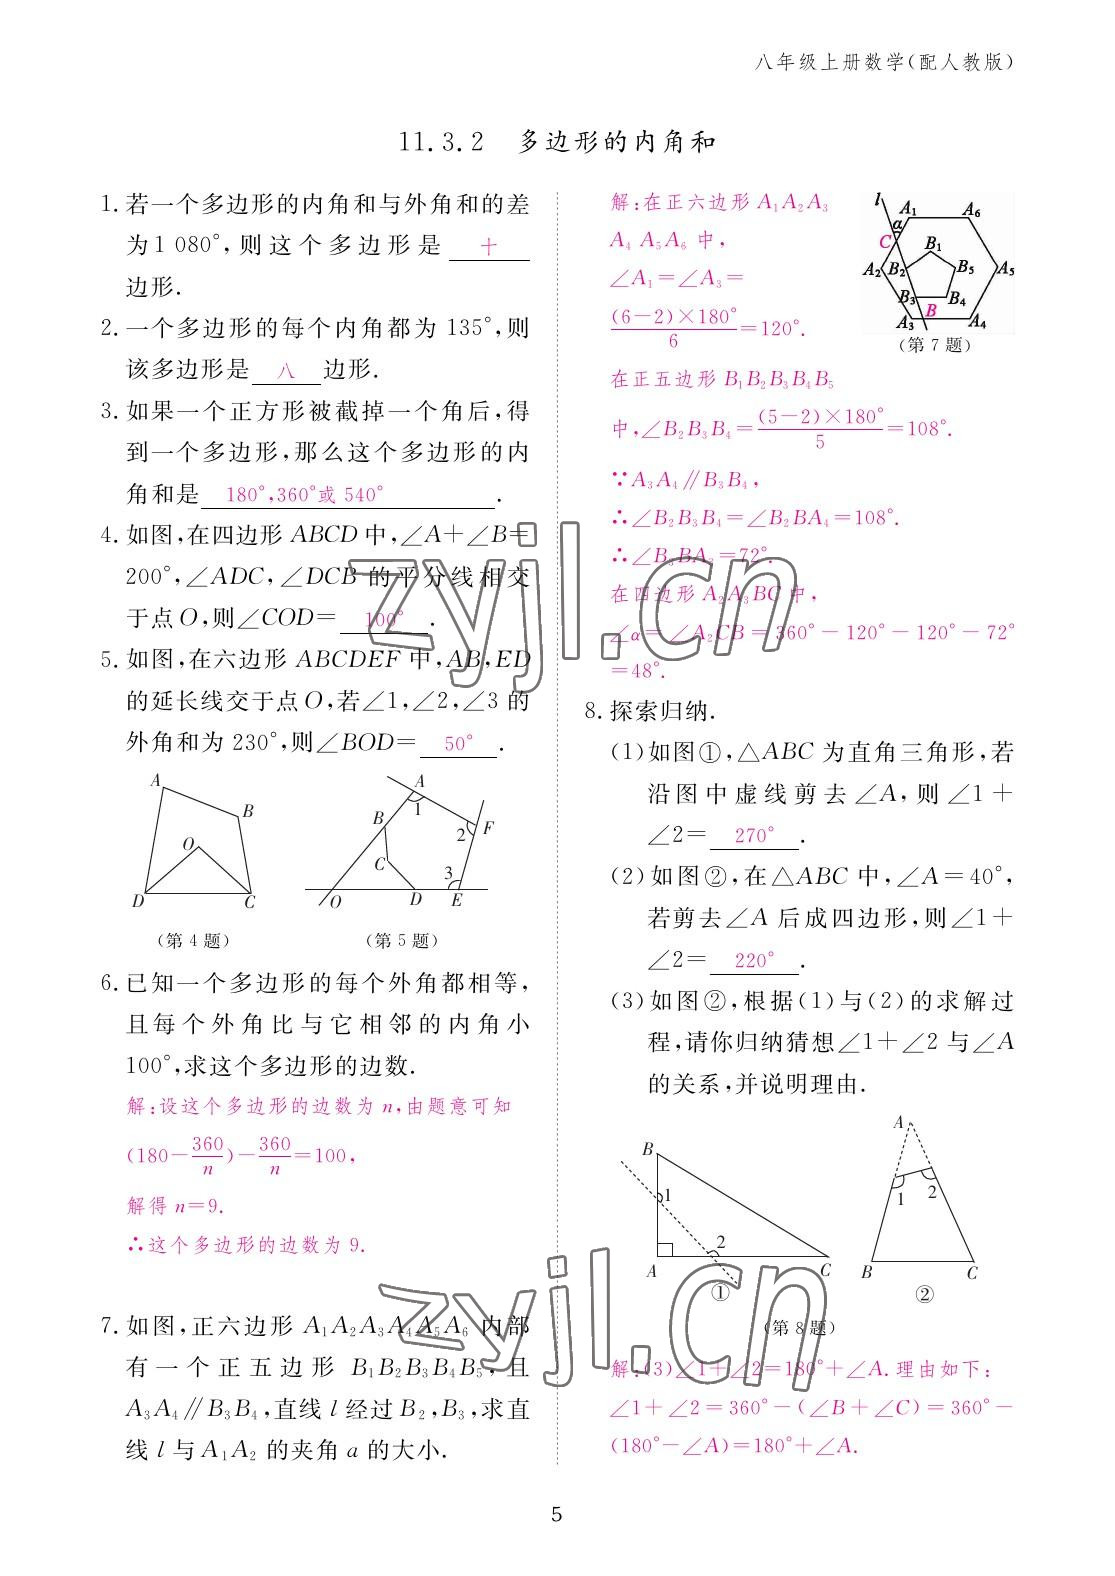 八年级上册数学(配人教版)
11.3.2 多边形的内角和
1. 若一个多边形的内角和与外角和的差
为1 080°,则这个多边形是 十
边形.
2. 一个多边形的每个内角都为 135°,则
该多边形是 八 边形.
3. 如果一个正方形被截掉一个角后,得
到一个多边形,那么这个多边形的内
角和是 180°,360°或 540° .
4. 如图,在四边形 ABCD 中,∠A+∠B=
200°,∠ADC,∠DCB 的平分线相交
于点 O,则∠COD= 100° .
5. 如图,在六边形 ABCDEF 中,AB,ED
的延长线交于点 O,若∠1,∠2,∠3 的
外角和为 230°,则∠BOD= 50° .
A
B
O
D
C
(第 4 题)
A
1
B
2
F
C
3
O
D
E
(第 5 题)
6. 已知一个多边形的每个外角都相等,
且每个外角比与它相邻的内角小
100°,求这个多边形的边数.
解:设这个多边形的边数为 n,由题意可知
(180-360/n)-360/n=100,
解得 n=9.
∴这个多边形的边数为 9.
7. 如图,正六边形 A₁A₂A₃A₄A₅A₆ 内部
有一个正五边形 B₁B₂B₃B₄B₅,且
A₃A₄∥B₃B₄,直线 l 经过 B₂,B₃,求直
线 l 与 A₁A₂ 的夹角 a 的大小.
解:在正六边形 A₁A₂A₃
A₄ A₅A₆ 中,
∠A₁=∠A₃=
(6-2)×180°/6=120°.
在正五边形 B₁B₂B₃B₄B₅
中,∠B₂B₃B₄=(5-2)×180°/5=108°.
∵A₃A₄∥B₃B₄,
∴∠B₂B₃B₄=∠B₂BA₄=108°.
∴∠B₃BA₃=72°.
在四边形 A₂A₃BC 中,
∠α=∠A₂CB=360°-120°-120°-72°
=48°.
l
A₁
A₆
α
C
B₁
A₂
B₂
B₅
A₅
B₃
B₄
B
A₃
A₄
(第 7 题)
8. 探索归纳.
(1)如图①,△ABC 为直角三角形,若
沿图中虚线剪去∠A,则∠1+
∠2= 270° .
(2)如图②,在△ABC 中,∠A=40°,
若剪去∠A 后成四边形,则∠1+
∠2= 220° .
(3)如图②,根据(1)与(2)的求解过
程,请你归纳猜想∠1+∠2 与∠A
的关系,并说明理由.
B
1
2
A
C
①
A
1
2
B
C
②
(第 8 题)
解:(3)∠1+∠2=180°+∠A.理由如下:
∠1+∠2=360°-(∠B+∠C)=360°-
(180°-∠A)=180°+∠A.
zyjl.cn
zyjl.cn
5